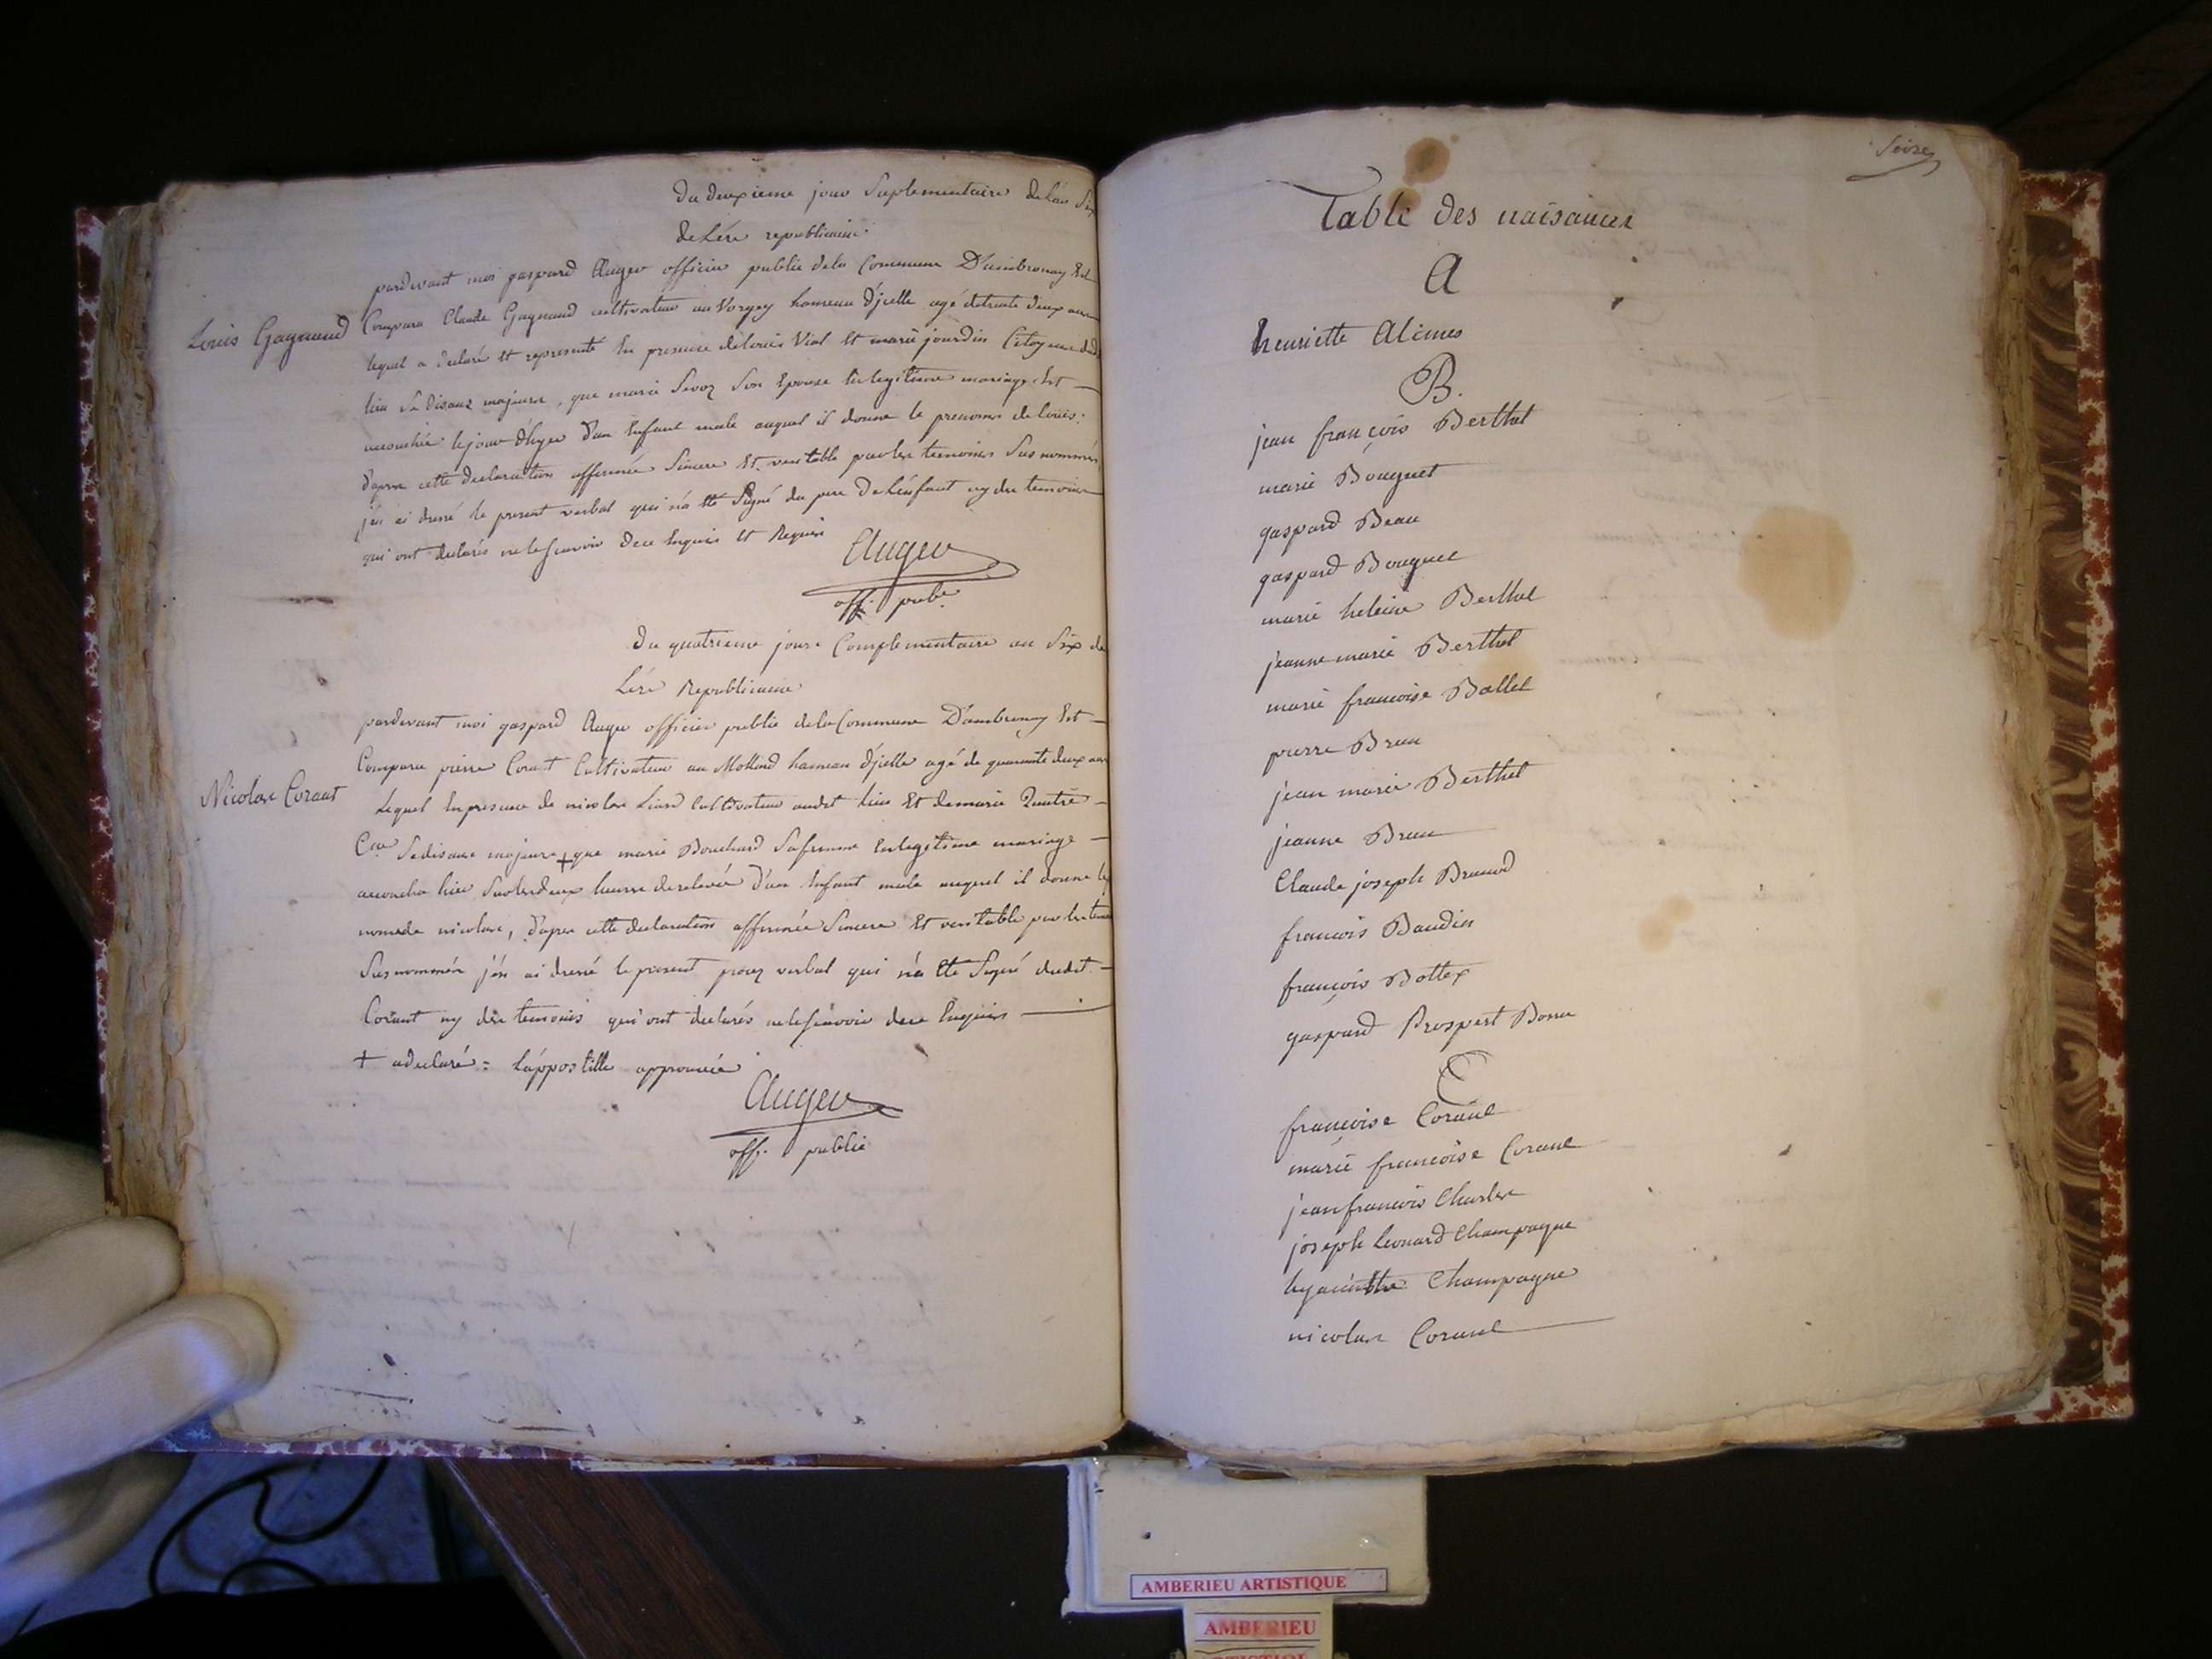 Du deuxieme jour Suplementaire de l'an Six
de L'ére republicaine.
Louis Gagnaud
pardevant moi gaspard Auger officier public de la Commune D'ambronay Est
Comparu Claude Gagnaud cultivateur au Vorgey hameau d'jcelle agé de trente deux ans
lequel a declaré et representé En presence de louis Vial Et marie jourdin Citoyens dud
lieu Se disans majeurs, que marie Sevoz Son Epouse En legitime mariage Est
accouchée le jour d'hyer d'un Enfant male auquel il donne le prenoms de louis.
d'apres cette declaration affirmée Sincere Et veritable par les temoins Sus nommés
j'en ai dressé le present verbal qui n'a Eté Signé du pere De L'enfant ny des temoins
qui ont declarés ne le scavoir de ce Enquis Et Requis
Auger
off. pubc.
Du quatrieme jour Complementaire an Six de
L'ére Republicaine
pardevant moi gaspard Auger officier public de la Commune D'ambronay Est
Comparu pierre Corant Cultivateur au Mollard hameau d'jcelle agé de quarante deux ans
Nicolas Corant
Lequel En presence de nicolas Liard Cultivateur audit lieu Et de marie
Se disans majeurs + que marie Bouchard Sa femme En legitime mariage
accoucha hier Sur les deux heures de relevée d'un Enfant male auquel il donne le
nom de nicolas, d'apres cette declaration affirmée Sincere Et veritable par les
Susnommés j'en ai dressé le present procez verbal qui n'a Eté Signé dudit
Corant ny des temoins qui ont declarés ne le scavoir de ce Enquis
+ a declaré = L'appostille approuvée
Auger
off. public
Seize
Table des naisances
A
henriette Alimes
B.
jean françois Berthet
marie Bouquet
gaspard Beau
gaspard Bouquet
marie heleine Berthet
jeanne marie Berthet
marie francoise Ballet
pierre Brun
jean marie Berthet
jeanne Brun
Claude joseph Brunod
francois Baudin
françois Bottex
gaspard Prospert
C
francoise Corant
marie francoise Corant
jean francois Charles
joseph Leonard Champagne
hyacinthe Champagne
nicolas Corant
AMBERIEU ARTISTIQUE
AMBERIEU